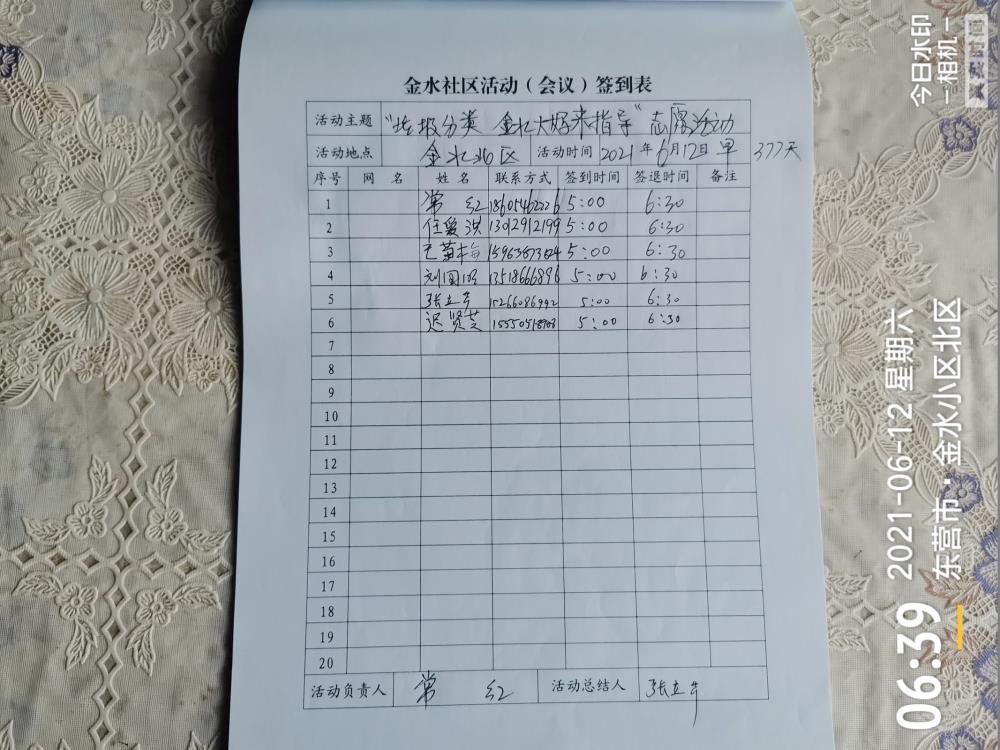 金水社区活动（会议）签到表
活动主题 "垃圾分类 金水大好来指导"志愿活动
活动地点 金水北区 活动时间 2021年6月12日早 377天
序号 网名 姓名 联系方式 签到时间 签退时间 备注
1 常红 18605462226 5:00 6:30
2 任爱洪 13012912199 5:00 6:30
3 5:00 6:30
4 刘国明 13518666896 5:00 6:30
5 张立 15266086992 5:00 6:30
6 迟贤芝 5:00 6:30
7
8
9
10
11
12
13
14
15
16
17
18
19
20
活动负责人 常红 活动总结人 张立
今日水印
-相机-
06:39
2021-06-12 星期六
东营市·金水小区北区